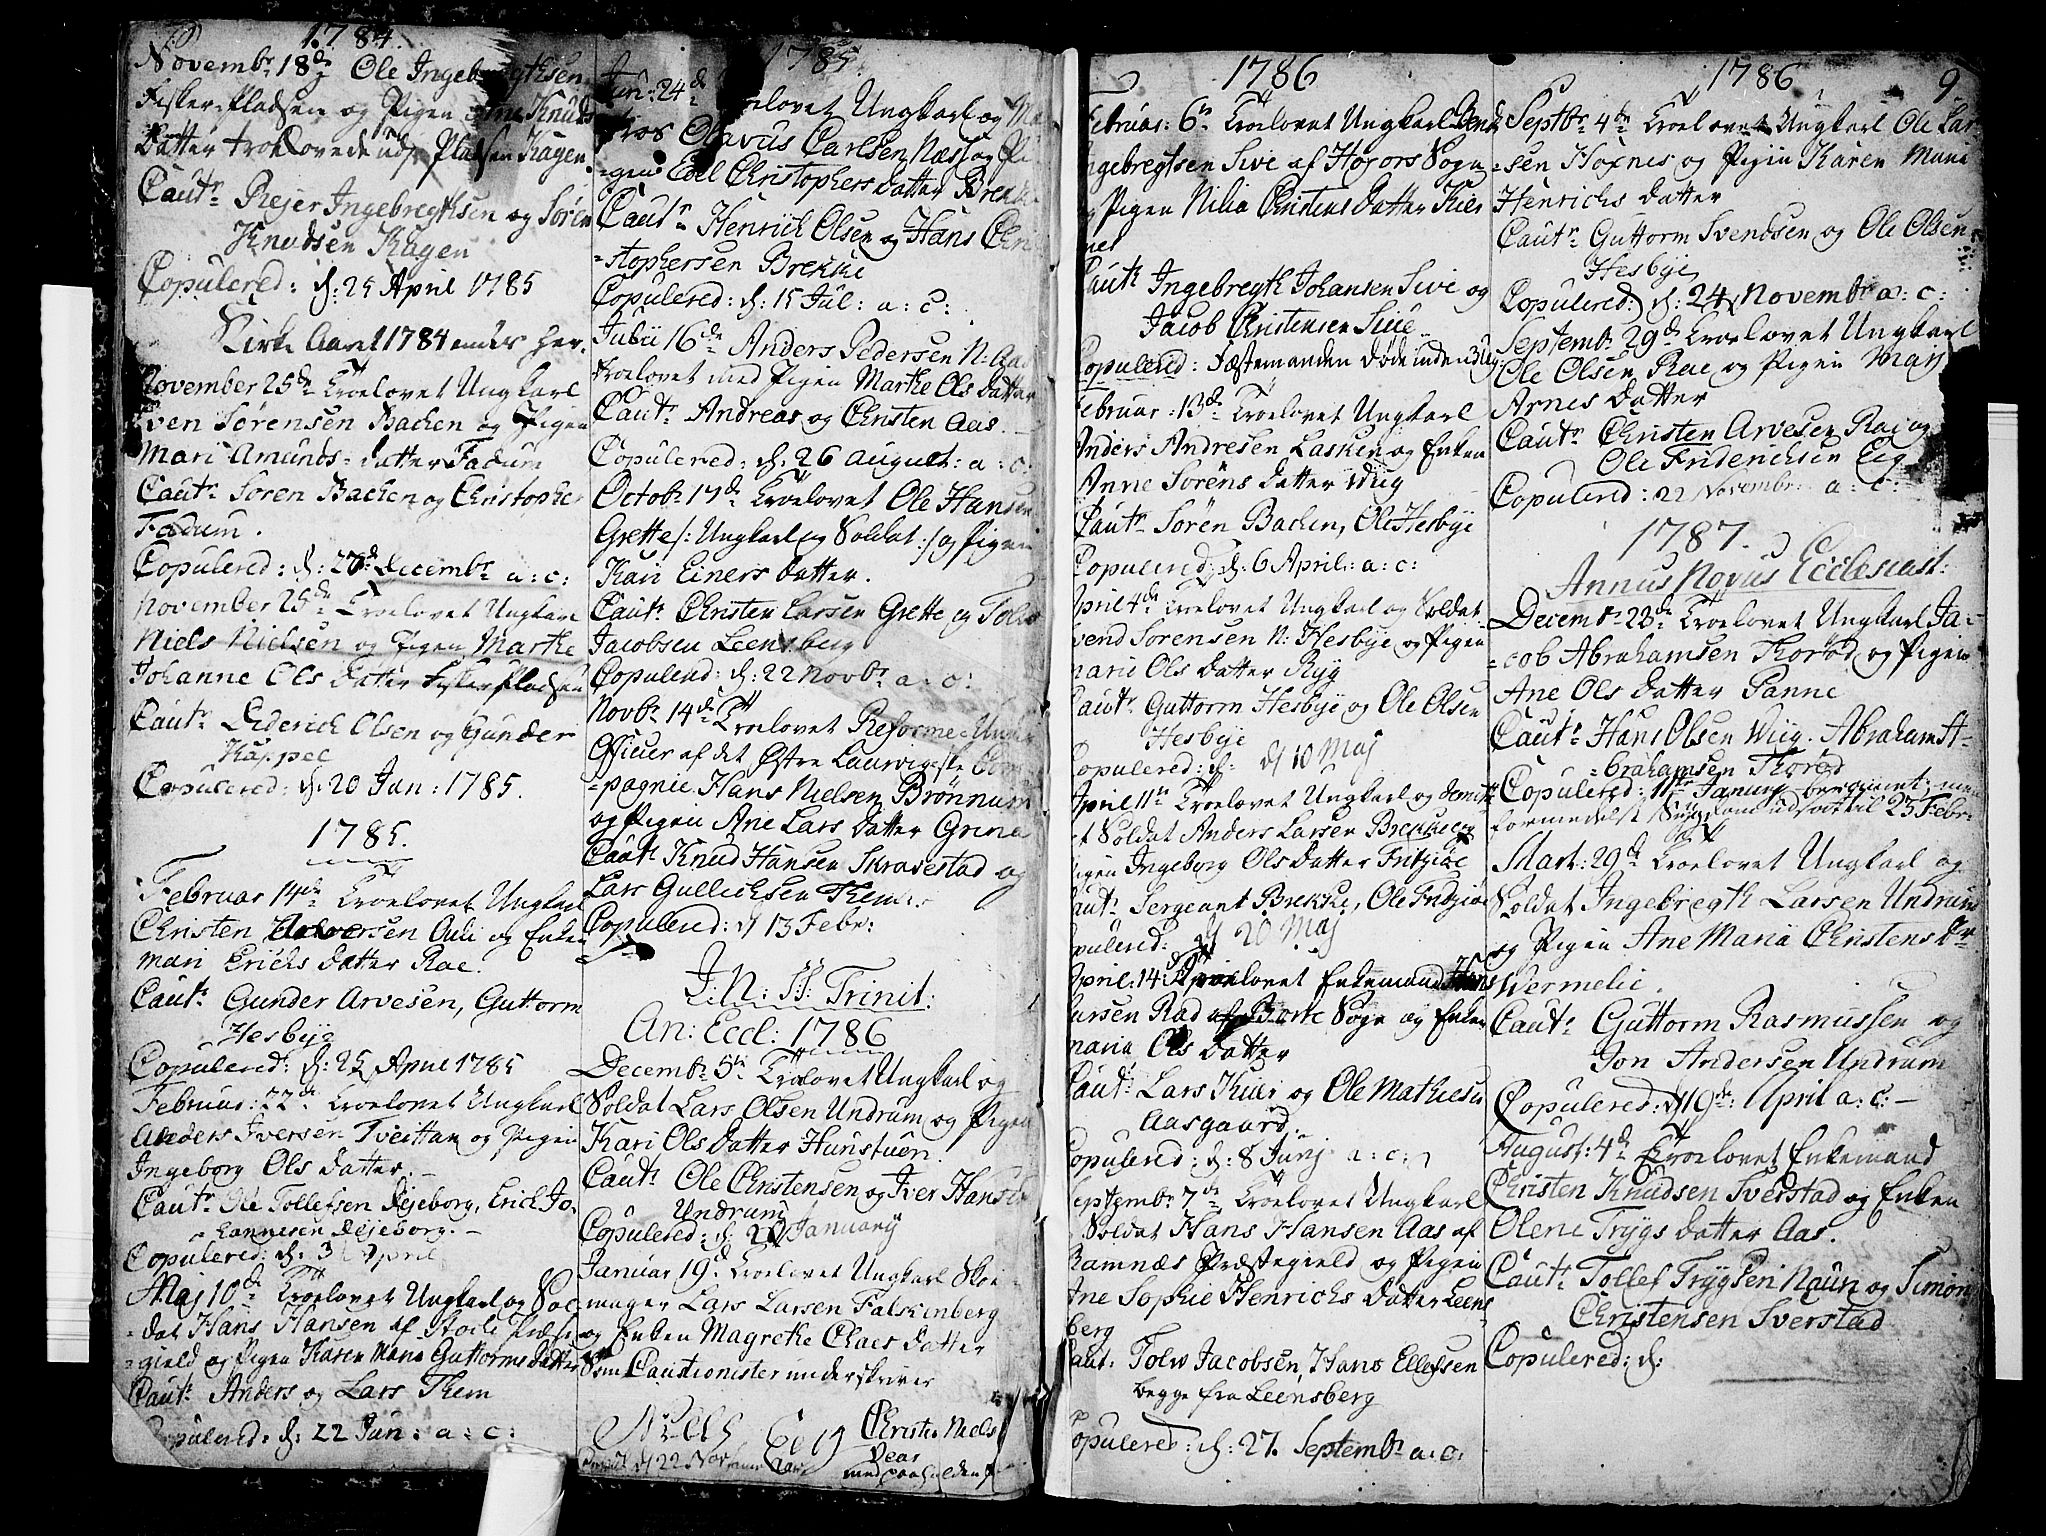 1784.
Novembr 18de Ole Ingebregthsen
Fisker-Pladsen og Pigen Knuds
Datter trolovede udj Pladsen Kagen.
Cautr Rejer Ingebregthsen og Sören
Knudsen Kagen
Copulered: d: 25 April 1785
Kirke Aaret 1784 endes her.
November 25de Troelovet Ungkarl
Sven Sörensen Bachen og Pigen
Mari Amunds-datter Fadum
Cautr Sören Bachen og Christopher
Fadum.
Copulered: d: 27de Decembr a: c:
November 25de Troelovet Ungkarl
Niels Nielsen og Pigen Marthe
Johanne Ols datter Fisker Pladsen
Cautr Diderich Olsen og Gunder
Kappee
Copulered: d: 20 Jan: 1785.
1785.
Februar 14de Troelovet Ungkarl
Christen Halvorsen Auli og Enken
Mari Erichs datter Rae.
Cautr Gunder Arvesen, Guttorm
Hesbye
Copulered: d: 25 April 1785
Februar: 22de Troelovet Ungkarl
Anders Iversen Tveittan og Pigen
Ingeborg Ols datter. -
Cautr Ole Tollefsen Dejeborg, Erich Jo-
hannesen Dejeborg. -
Copulered: d: 3 April
Maj 10de Troelovet Ungkarl og Sol
-dat Hans Hansen af Præste
-gield og Pigen Karen Maria Guttorms datter
Cautr Anders og Lars Them
Copulered: d: 22 Jun: a: c:
1785.
Jun: 24de Troelovet Ungkarl og Ma
tros Olavus Carlsen Næss og Pi
-gen Edel Christophers datter Brekke
Cautr Henrich Olsen og Hans Chri
-stophersen Brekke
Copulered: d: 15 Jul: a: c:
Julii 16de Anders Pedersen N: Aas
troelovet med Pigen Marthe Ols datter
Cautr Andreas og Christen Aas.
Copulered: d: 26 August: a: c:
Octobr 17de Troelovet Ole Hansen
Grette /: Ungkarl og Soldat :/ og Pigen
Kari Einers datter.
Cautr Christen Larsen Grette og Tolv
Jacobsen Leensberg
Copulered: d: 22 Novbr a: c:
Novbr 14de Troelovet Reforme: Under
Officier af det Østre Laurvigske Com
-pagnie Hans Nielsen Brönnum
og Pigen Ane Lars datter Grine
Cautr Knud Hansen Skravestad og
Lars Gullichsen Them
Copulered: d 13 Febr:
I. N: SS: Trinit:
An: Eccl: 1786
Decembr 5te Troelovet Ungkarl og
Soldat Lars Olsen Undrum og Pigen
Kari Ols datter Hunstuen.
Cautr Ole Christensen og Iver Hansen
Undrum
Copulered: d: 20 January
Januar 19d: Troelovet Ungkarl Skoe-
mager Lars Larsen Falkenberg
og Enken Magrethe Claes datter
Som Cautionister underskriver
Christen Niels
Vear
med paaholden Pen
d 22 Nov
1786
Februar: 6te Troelovet Ungkarl
Ingebregtsen Sive af Hogors Sogn
og Pigen Nilia Christens datter Kier
nes
Cautr Ingebregth Johansen Sive og
Jacob Christensen Sive
Copulered: Fæstemanden døde inden
Februar: 13de Troelovet Ungkarl
Anders Andresen Lasken og Enken
Anne Sörens datter Wiig
Cautr Sören Bachen, Ole Hesbye
Copulered: d: 6 April: a: c:
April 4de Troelovet Ungkarl og Soldat
Svend Sörensen N: Hesbye og Pigen
Marie Ols datter Ryg
Cautr Guttorm Hesbye og Ole Olsen
Hesbye
Copulered: d: d 10 Maj
April 11te Troelovet Ungkarl og demitt-
-t Soldat Anders Larsen Brekke og
Pigen Ingeborg Ols datter Fritzöe
Cautr Sergeant Brekke, Ole Fritzöe
Copulered: d 20 Maj
April: 14de Troelovet Enkemand Hans
Larsen Rad af Borre Sogn og Enken
Maria Ols datter
Cautr Lars Kiær og Ole Mathiesen
Aasgaard.
Copulered: d: 8 Junj a: c:
Septembr 7de Troelovet Ungkarl
Soldat Hans Hansen Aas af
Ramnæs Præstegield og Pigen
Ane Sophie Henrichs datter Leens
berg
Caut: Tolv Jacobsen, Hans Ellefsen
begge fra Leensberg
Copulered: d: 27. Septembr a: c:
1786
9
Septbr 4de Troelovet Ungkarl Ole Lar-
-sen Hoxnes og Pigen Karen Maria
Henrichs datter
Cautr Guttorm Svendsen og Ole Olsen
Hesbye
Copulered: d: 24 Novembr a: c:
Septembr 29de Troelovet Ungkarl
Ole Olsen Rae og Pigen Mary
Arnes datter
Cautr Christen Arvesen Rae og
Ole Friderichsen Eig
Copulered: 22 Novembr: a: c:
1787.
Annus Novus Ecclesiast:
Decembr 28de Troelovet Ungkarl Ja-
-cob Abrahamsen Thoröd og Pigen
Ane Ols datter Panne
Cautr Hans Olsen Wiig. Abraham A-
-brahamsen Thoröd
Copulered: 11te Januar berammet, men
formedelst Sygdom udsatt til 23 Febr:
Mart: 29de Troelovet Ungkarl og
Soldat Ingebregth Larsen Undrum
og Pigen Ane Maria Christens Dr
Vermelie.
Cautr Guttorm Rasmussen og
Jon Andersen Undrum
Copulered: d 19de April a: c: -
August: 4de Troelovet Enkemand
Christen Knudsen Sverstad og Enken
Olene Trygs datter Aas.
Cautr Tollef Trygsen Naun og Simon
Christensen Sverstad
Copulered: d: